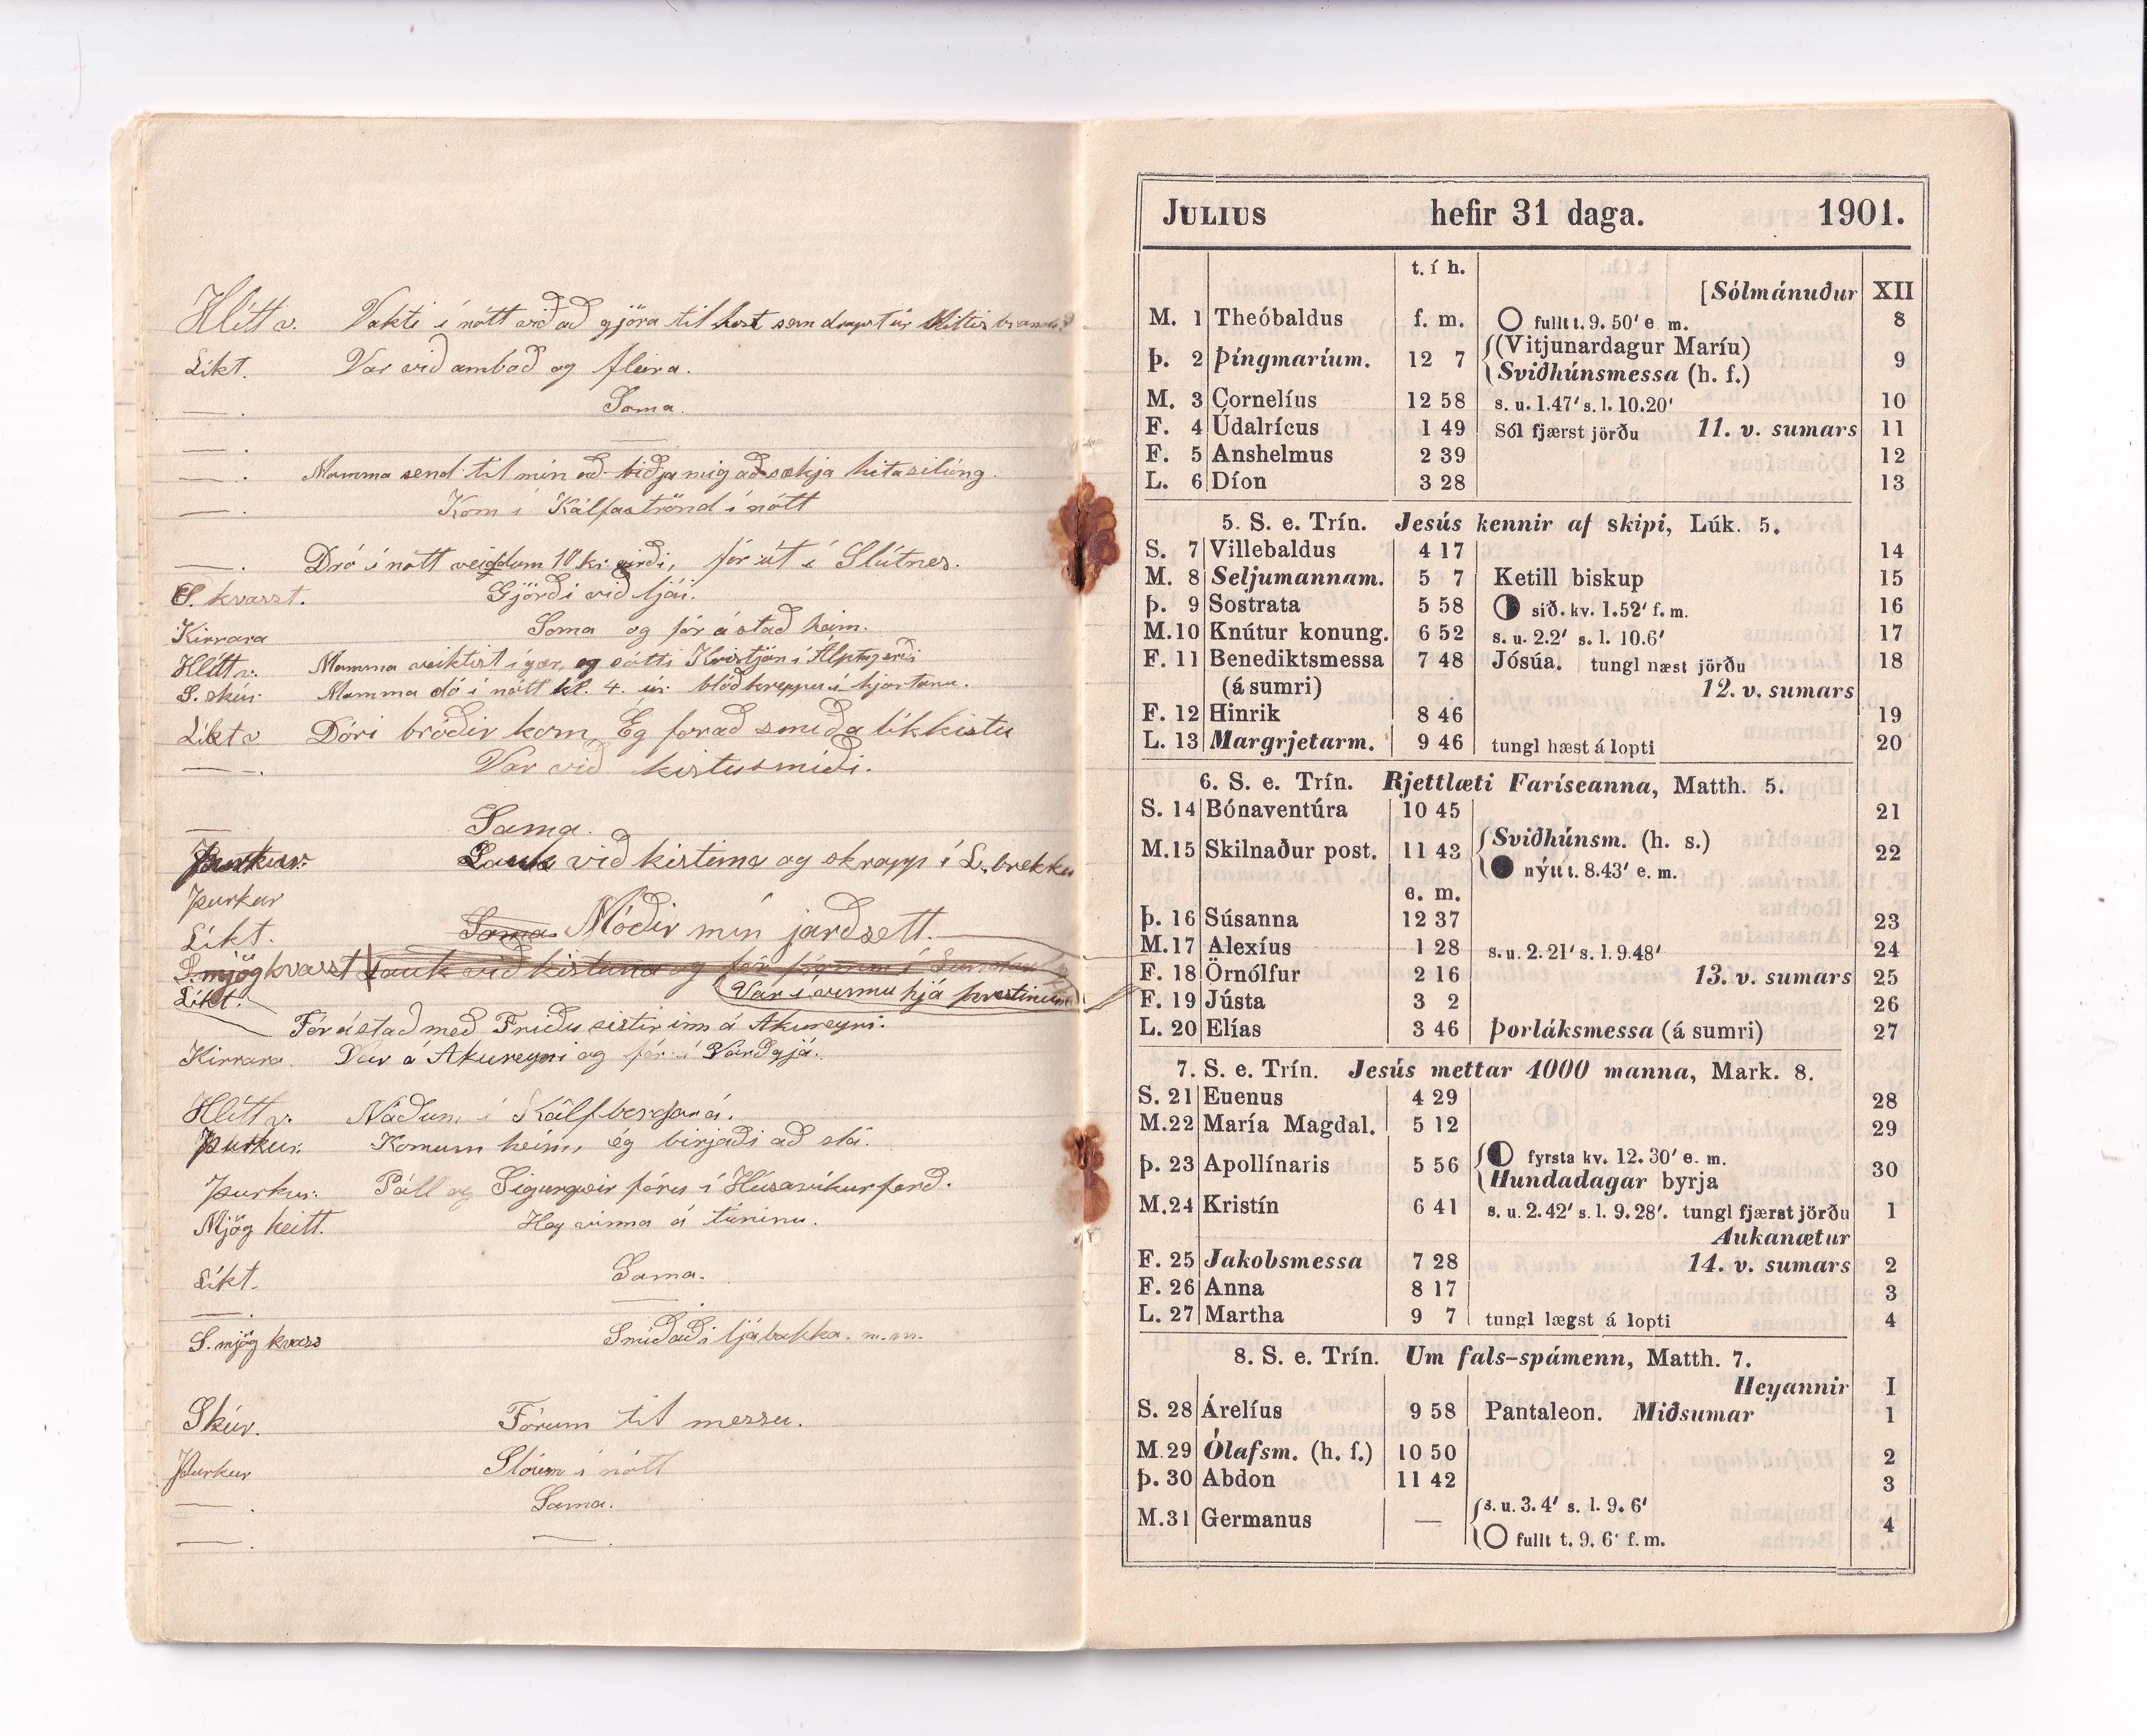 Hlítt v. Vakti í nótt við að gjöra til
Líkt. Var við amboð og fleira.
— . Sama.
— . —
— . Mamma send til mín að biðja mig að sækja hitasilúng.
— . Kom í Kálfaströnd í nótt
— . Dró í nótt veiddum 10 kr. virði, fór út í Slútnes.
S. kvasst. Gjörði við ljái.
Kirrara Sama og fór á stað heim.
Hlítt v. Mamma veiktist í gær, og sótti Kristján í Álptagerði
S. skúr. Mamma dó í nótt kl. 4. úr blóðkreppu í hjartanu.
Líkt v Dóri bróðir kom, Ég fór að smíða líkkistu
— . Var við kistusmíði.
— Sama.
Þurkur. Lauk við kistuna og skrapp í L. brekku
Þurkur
Líkt. Sama Móðir mín jarðsett.
S. mjög kvasst Lauk við kistuna og fór
Líkt. Var í vinnu hjá prestinum
Fór á stað með Fríðu sistir inn á Akureyri.
Kirrara. Var á Akureyri og fór í Varðgjá.
Hlítt v. Náðum í Kálfborgará.
Þurkur. Komum heim, ég birjaði að slá.
Þurkur. Páll og Sigurgeir fóru í Húsavíkurferð.
Mjög heitt. Hey vinna á túninu.
Líkt. Sama.
— . —
S. mjög kvass Smíðaði ljábakka. m.m.
Skúr. Fórum til messu.
Þurkur Slóum í nótt
— . Sama.
— . — .
JULIUS hefir 31 daga. 1901.
t. í h.
[Sólmánuður XII
M. 1 Theóbaldus f. m. ○ fullt t. 9. 50′ e m. 8
Þ. 2 Þíngmaríum. 12 7 (Vitjunardagur Maríu) 9
Sviðhúnsmessa (h. f.)
M. 3 Cornelíus 12 58 s. u. 1.47′ s. l. 10.20′ 10
F. 4 Údalrícus 1 49 Sól fjærst jörðu 11. v. sumars 11
F. 5 Anshelmus 2 39 12
L. 6 Díon 3 28 13
5. S. e. Trín. Jesús kennir af skipi, Lúk. 5.
S. 7 Villebaldus 4 17 14
M. 8 Seljumannam. 5 7 Ketill biskup 15
Þ. 9 Sostrata 5 58 ◑ síð. kv. 1.52′ f. m. 16
M. 10 Knútur konung. 6 52 s. u. 2.2′ s. l. 10.6′ 17
F. 11 Benediktsmessa 7 48 Jósúa. tungl næst jörðu 18
(á sumri) 12. v. sumars
F. 12 Hinrik 8 46 19
L. 13 Margrjetarm. 9 46 tungl hæst á lopti 20
6. S. e. Trín. Rjettlæti Faríseanna, Matth. 5.
S. 14 Bónaventúra 10 45 21
M. 15 Skilnaður post. 11 43 Sviðhúnsm. (h. s.) 22
● nýtt t. 8.43′ e. m.
e. m.
Þ. 16 Súsanna 12 37 23
M. 17 Alexíus 1 28 s. u. 2.21′ s. l. 9.48′ 24
F. 18 Örnólfur 2 16 13. v. sumars 25
F. 19 Jústa 3 2 26
L. 20 Elías 3 46 Þorláksmessa (á sumri) 27
7. S. e. Trín. Jesús mettar 4000 manna, Mark. 8.
S. 21 Euenus 4 29 28
M. 22 María Magdal. 5 12 29
Þ. 23 Apollínaris 5 56 ◐ fyrsta kv. 12. 30′ e. m. 30
Hundadagar byrja
M. 24 Kristín 6 41 s. u. 2.42′ s. l. 9.28′. tungl fjærst jörðu 1
Aukanætur
F. 25 Jakobsmessa 7 28 14. v. sumars 2
F. 26 Anna 8 17 3
L. 27 Martha 9 7 tungl lægst á lopti 4
8. S. e. Trín. Um fals-spámenn, Matth. 7.
Heyannir I
S. 28 Árelíus 9 58 Pantaleon. Miðsumar 1
M. 29 Ólafsm. (h. f.) 10 50 2
Þ. 30 Abdon 11 42 3
M. 31 Germanus — s. u. 3. 4′ s. l. 9. 6′ 4
○ fullt t. 9. 6′ f. m.